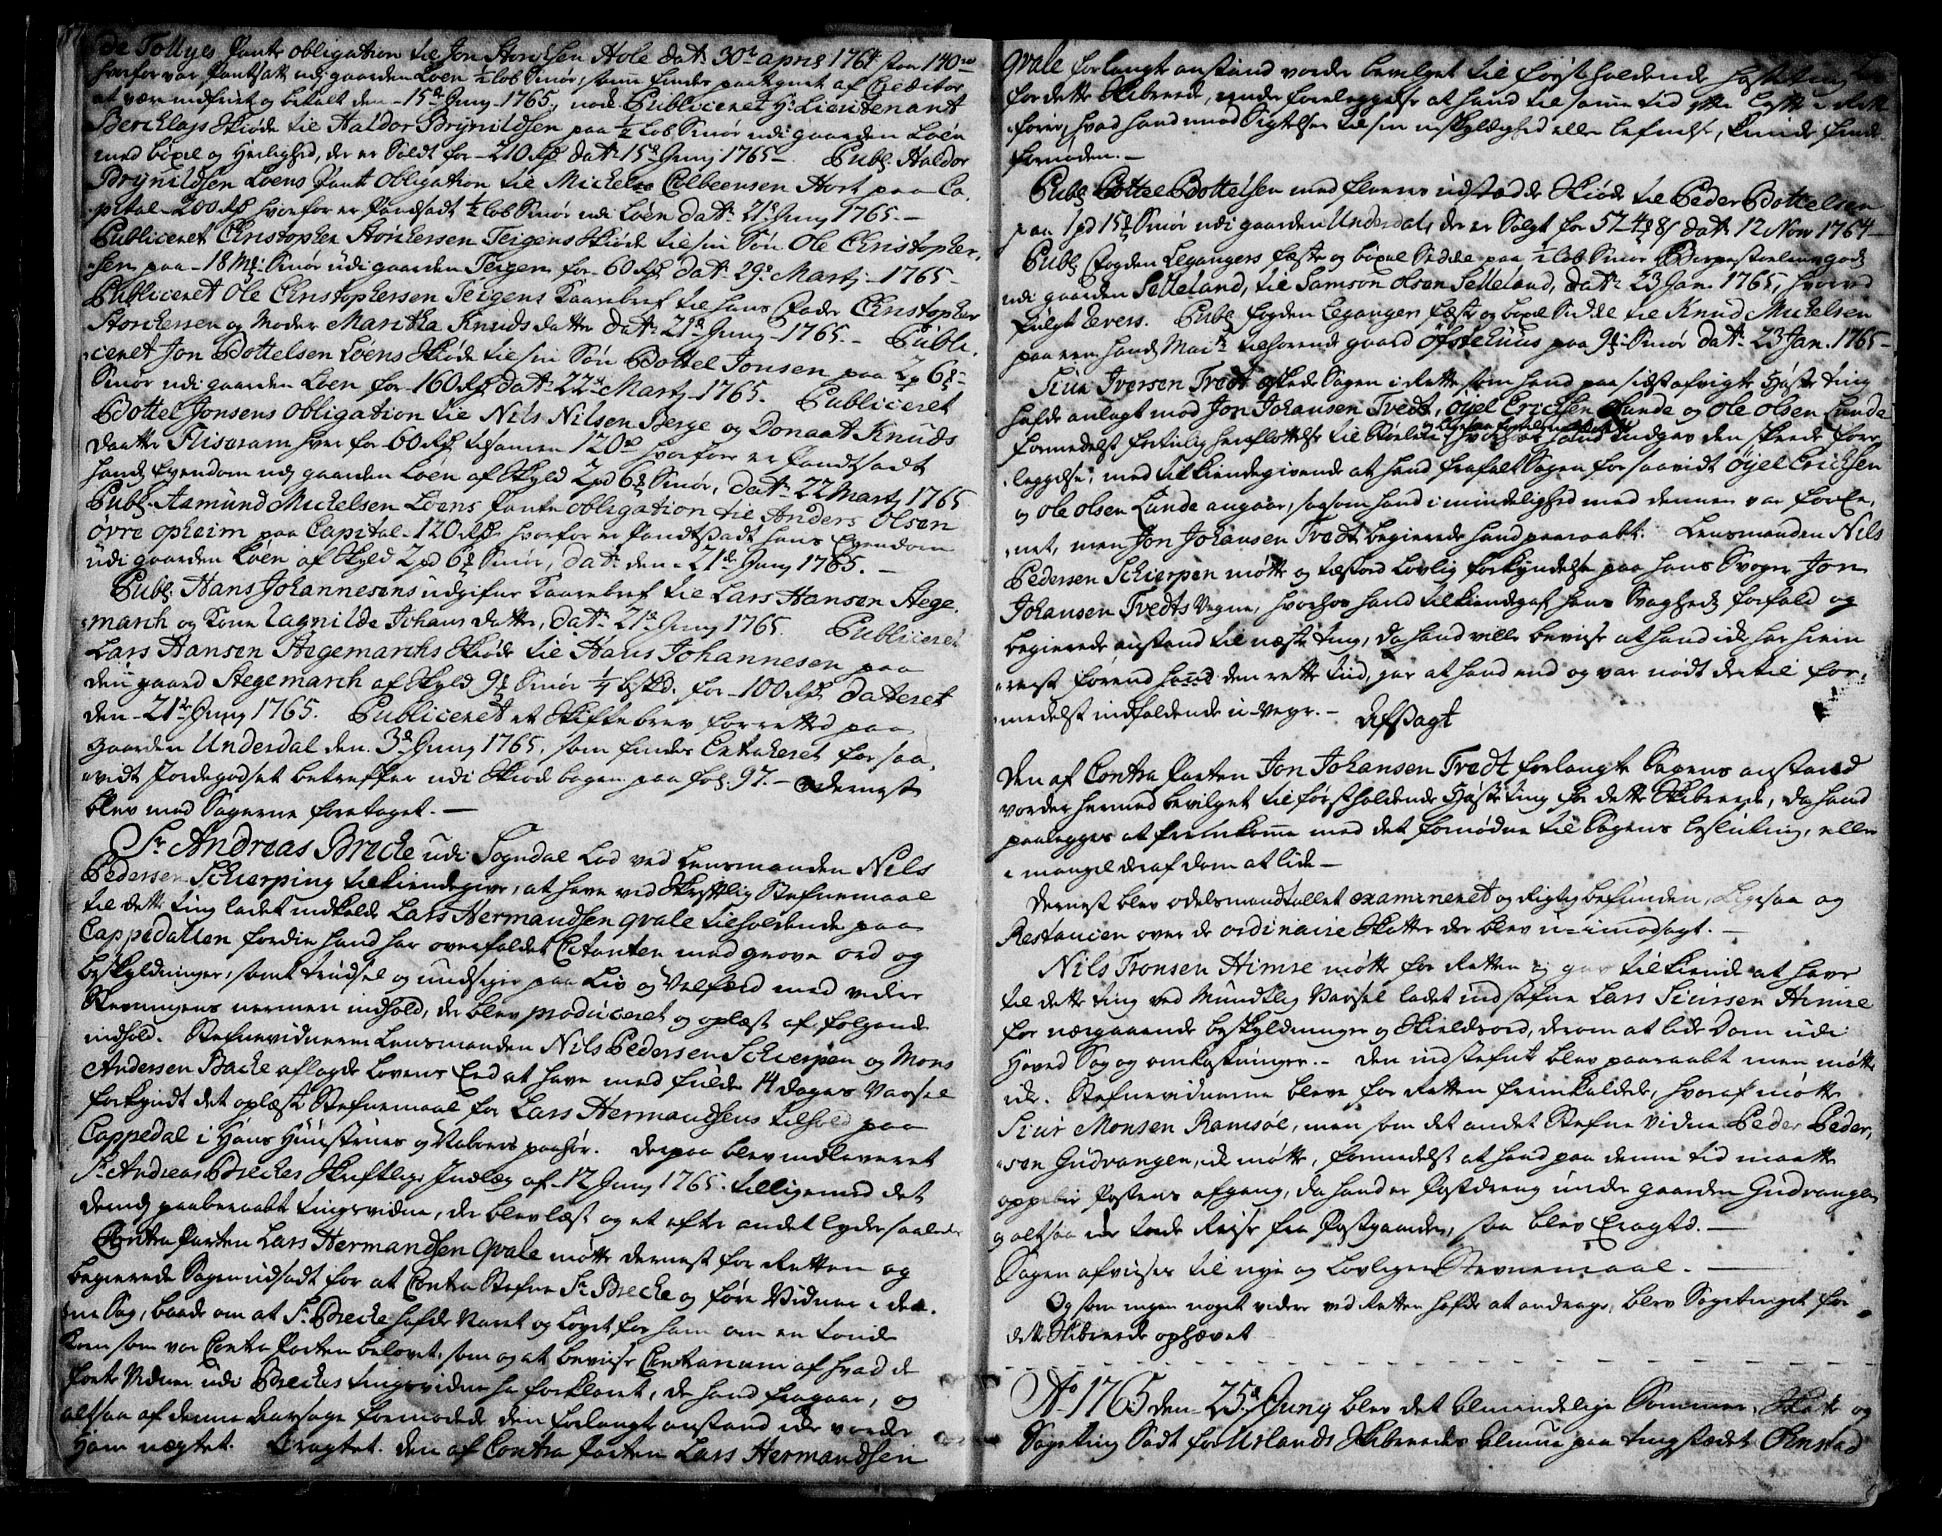 de Tollyes Pante obligation til Jon Storchsen Hole dat: 30t april 1764 stor 140rd
hvorfor var Pantsatt udi gaarden Loen ½ lob Smør, som findes paategnet af Creditor
at være indfriet og betalt den 15de Juny 1765, nok Publiceret Hr Lieutenant
Bercklaps Skiøde til Haldor Brynildsen paa ½ lob Smør udi gaarden Loen
med böxel og Herlighed, der er Soldt for 210 rdr dat: 15de Junj 1765. Publ: Haldor
Brynildsen Loens Pante Obligation til Michel Colbeensen Hort paa Ca-
pital 200 Rdr hvorfor er Pandsadt ½ lob Smør udi Loen dat: 21de Juny 1765.
Publiceret Christopher Storchersen Teigens Skiøde til sin Søn Ole Christopher-
sen paa 18 mk: Smør udi gaarden Teigen for 60 rdr dat: 29de Martj 1765
Publiceret Ole Christophersen Teigens Kaarebref til hans Fader Christopher
Storchersen og Moder Maritha Knudsdatter dat: 21de Juny 1765. Publi-
ceret Jon Bottelsen Loens Skiøde til sin Søn Bottel Jonsen paa 2 p 6 mk
Smør udi gaarden Loen for 160 rdr dat: 22de Martj 1765. Publiceret
Bottel Jonsens obligation til Nils Nilsen Berge og Donaat Knuds
daatter Flisaram hver for 60 rdr tilsamen 120 rd hvorfore er Pandtsadt
hands Eyendom udj gaarden Loen af Skyld 2 pd 6 mk Smør, dat: 22 Martj 1765
Publ: Aamund Michelsen Loens Pante obligation til Anders Olsen
øvre opheim paa Capital 120 rdr hvorfor er Pandtsadt hans Eyendom
udi gaarden Loen af Skyld 2 pd 6 mk Smør, dat: den 21de Juny 1765.
Publ: Hans Johannesens udgifne Kaarebref til Lars Hansen Stege-
march og Kone Ragnilde Johansdatter, dat: 21de Juny 1765. Publiceret
Lars Hansen Stegemarchs Skiøde til Hans Johannesen paa
den gaard Stegemarch af Skyld 9 mk Smør ¼ hskd. for 100 rdr dateret
den 21de Juny 1765. Publiceret et Skiftebrev forrettet paa
gaarden Underdal den 3de Juny 1765, som findes Extraheret for saa-
vidt Jordegodset betreffer udi Skiøde bogen paa fol: 97. dernest
blev med Sagerne foretaget.
Sr Andreas Brecke udi Sogndal Lod ved Lensmanden Nils
Pedersen Schierping tilkiendegive, at have ved Skrftlig Stefnemaal
til dette ting ladet indkalde Lars Hermandsen qvale tilholdende paa
Cappedallen fordie hand har overfaldet Citanten med grove ord og
beskyldninger, samt trudsel og undsiger paa Liv og Velfærd med vider
Stevningens nermere indhold, der blev produceret og oplæst af følgende
indhold. Stefnevidnerne Lensmanden Nils Pedersen Schierpen og Mons
Andersen Backe aflagde Lovens Eed at have med fulde 14 dages Varsel
forkyndt det oplæste Stefnemaal for Lars Hermandsens tilhold paa
Cappedal i Hans Huustrues og Naboers paahør. derpaa blev indleveret
Sr Andreas Breckes Skriftlige Indlæg af 12 Juny 1765 tilligemed det
derudj paaberaabte tingsvidne, der blev læst og et efter andet lyder saaledes
Contra Parten Lars Hermandsen Qvale møtte dernest for Retten og
begierede Sagen udsadt for at Contra Stefne Sr Brecke og føre Vidner i den-
ne Sag, baade om at Sr Brecke hafde Naret og Loyet for ham om en tonde
Korn som var Contra Parten belovet, som og at bevise Contrarium af hvad de
førte Vidner udi Breckes tingsvidne ha forklaret, de hand fragaar, og
altsaa af denne aarsage formodede den forlangte anstand ikke vorder
Ham nægtet. Eragtet. den af Contra Parten Lars Hermandsen
Qvale forlangte anstand vorder bevilget til førstholdende Høsteting
for dette Skibreede, under foreleggelse at hand til samme tid
fører, hvad hand mod Sigtelsen til sin uskyldighed eller befrielse, kunde finde
fornøden.
Publ: Bottel Bottelsen med fleres udstædde Skiøde til Peder Bottelsen
paa 1 pd 15 mk Smør udi gaarden Underdal, der er Solgt for 57-4-8 s dat: 12 Nov 1764
Publ: fogden Legangers fæste og böxel Seddel paa ½ lob Smør Birgestoelens gods
udi gaarden Selleland, til Samson Olsen Selleland, dat: 23 Jan 1765, hvorved
fulgte Revers. Publ: fogden Legangers fæste og böxel Seddel til Knud Michelsen
paa een hands Mait: tilhørende gaard Øfstehuus paa 9 mk Smør dat: 23 Jan. 1765
Siur Iversen Tvedt æskede Sagen i Rette som hand paa sidstafvigte Høsteting
hafde anlagt mod Jon Johansen Tvedt, Øyel Erichsen Lunde og Ole Olsen Lunde
formedelst fortiilig henflottelse til Stølen, hvorhos hand indgav den skeede fore-
leggelse, med tilkiendegivende at hand frafalt Sagen forsaavidt Øyel Erichsen
og Ole Olsen Lunde angaar, saasom hand i mindelighed med dennem var foree-
net, men Jon Johansen Tvedt begierede hand paaraabt. Lensmanden Nils
Pedersen Schierpen møtte og tilstoed Lovlig forkyndelse paa hans Svoger Jon
Johansen Tvedts Vegne, hvorhos hand tilkiendegaf hans Svagheds forfald og
begierede anstand til næste ting, da hand ville bevise at hand icke har hiem
reist førend den rette tiid, jar at hand end og var nødt dertil for-
medelst indfaldende u-Vegr.
Afsagt
Den af Contra Parten Jon Johansen Tvedt forlangte Sagens anstand
vorder hermed bevilget til førstholdende Høsteting for dette Skibreede, da hand
paalegges at fremkomme med det fornødne til Sagens beslutning, eller
i mangel deraf dom at lide
Dernest blev odelsmandtallet examineret og rigtig befunden, Ligesaa og
Restancien over de ordinaire Skatter der blev u-imodsagt.
Nils Tronsen Himre møtte for Retten og gav tilkiende at have
til dette ting ved Mundtlig Varsel ladet indstefne Lars Siursen Himre
for nærgaaende beskyldninger og Skieldsord, derom at lide Dom udi
Hoved Sag og omkostninger. Den indstefnte blev paaraabt men møtte
icke. Stefnevidnerne bleve for Retten fremkaldede, hvoraf møtte
Siur Monsen Ramsøe, men som det andet Stefne vidne Peder Peder-
sen Gudvangen, ei møtte, formedelst at hand paa denne tid maatte
oppebie Postens afgang, da hand er Postdreng under gaarden Gudvangen
og altsaa icke torde Reise fra Postgaarden, saa blev Eragted.
Sagen afvises til nye og Lovligere Stevnemaal.
Og som ingen noget videre ved Retten hafde at andrage, blev Sagetinget for
dette Skibreede ophævet
Ao 1765 den 25de Juny blev det almindelige Sommer, Skatte og
Sageting Sadt for Urlands Skibreedes almue paa tingstædet Onstad